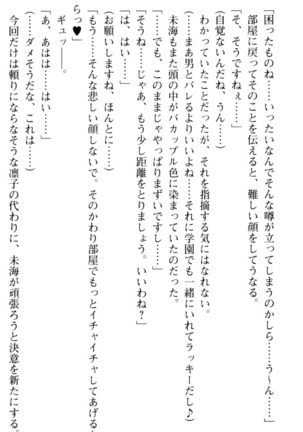 「困ったものね……いったいなんでそんな噂が立ってしまうのかしら……う～ん……」
部屋に戻ってそのことを伝えると、難しい顔をしてうなる。
「そ、そうですねぇ……」
(自覚ないんだね、うん……)
わかっていたことだったが、それを指摘する気にはなれない。
(……まぁ男とバレるよりいいよね……それに学園でも一緒にいれてラッキーだし♪)
未海もまた頭の中がバカップル色に染まっていたのだった。
「……でも、このままじゃやっぱりまずいですし……」
「そうね……じゃあ、もう少し距離をとりましょう。いいわね?」
「は、はい……」
(お願いしますね、ほんとに……)
「もう……そんな悲しい顔しないで。そのかわり部屋でもっとイチャイチャしてあげるか
ら♥」
ギュッ――。
「あ、あはは……はい……」
(……ダメそうだな、これは……)
今回だけは頼りにならなそうな凛子の代わりに、未海が頑張ろうと決意を新たにする。